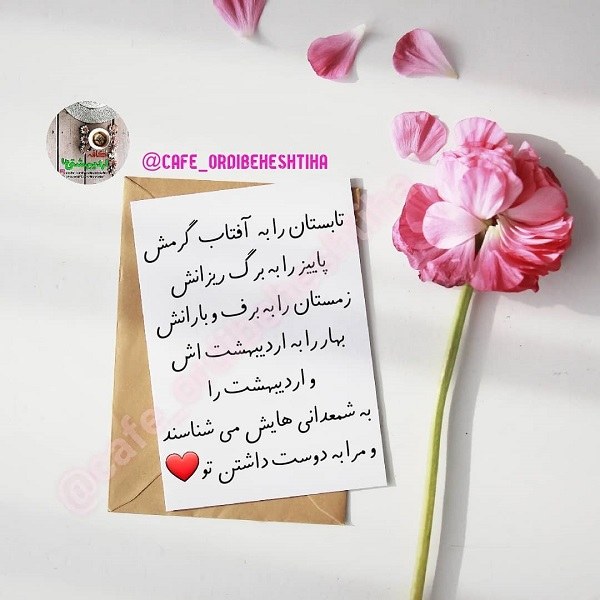 @CAFE_ORDIBEHESHTIHA
تابستان را به آفتاب گرمش
پاییز را به برگ ریزانش
زمستان را به برف و بارانش
بهار را به اردیبهشت اش
و اردیبهشت را
به شمعدانی هایش می شناسند
و مرا به دوست داشتن تو